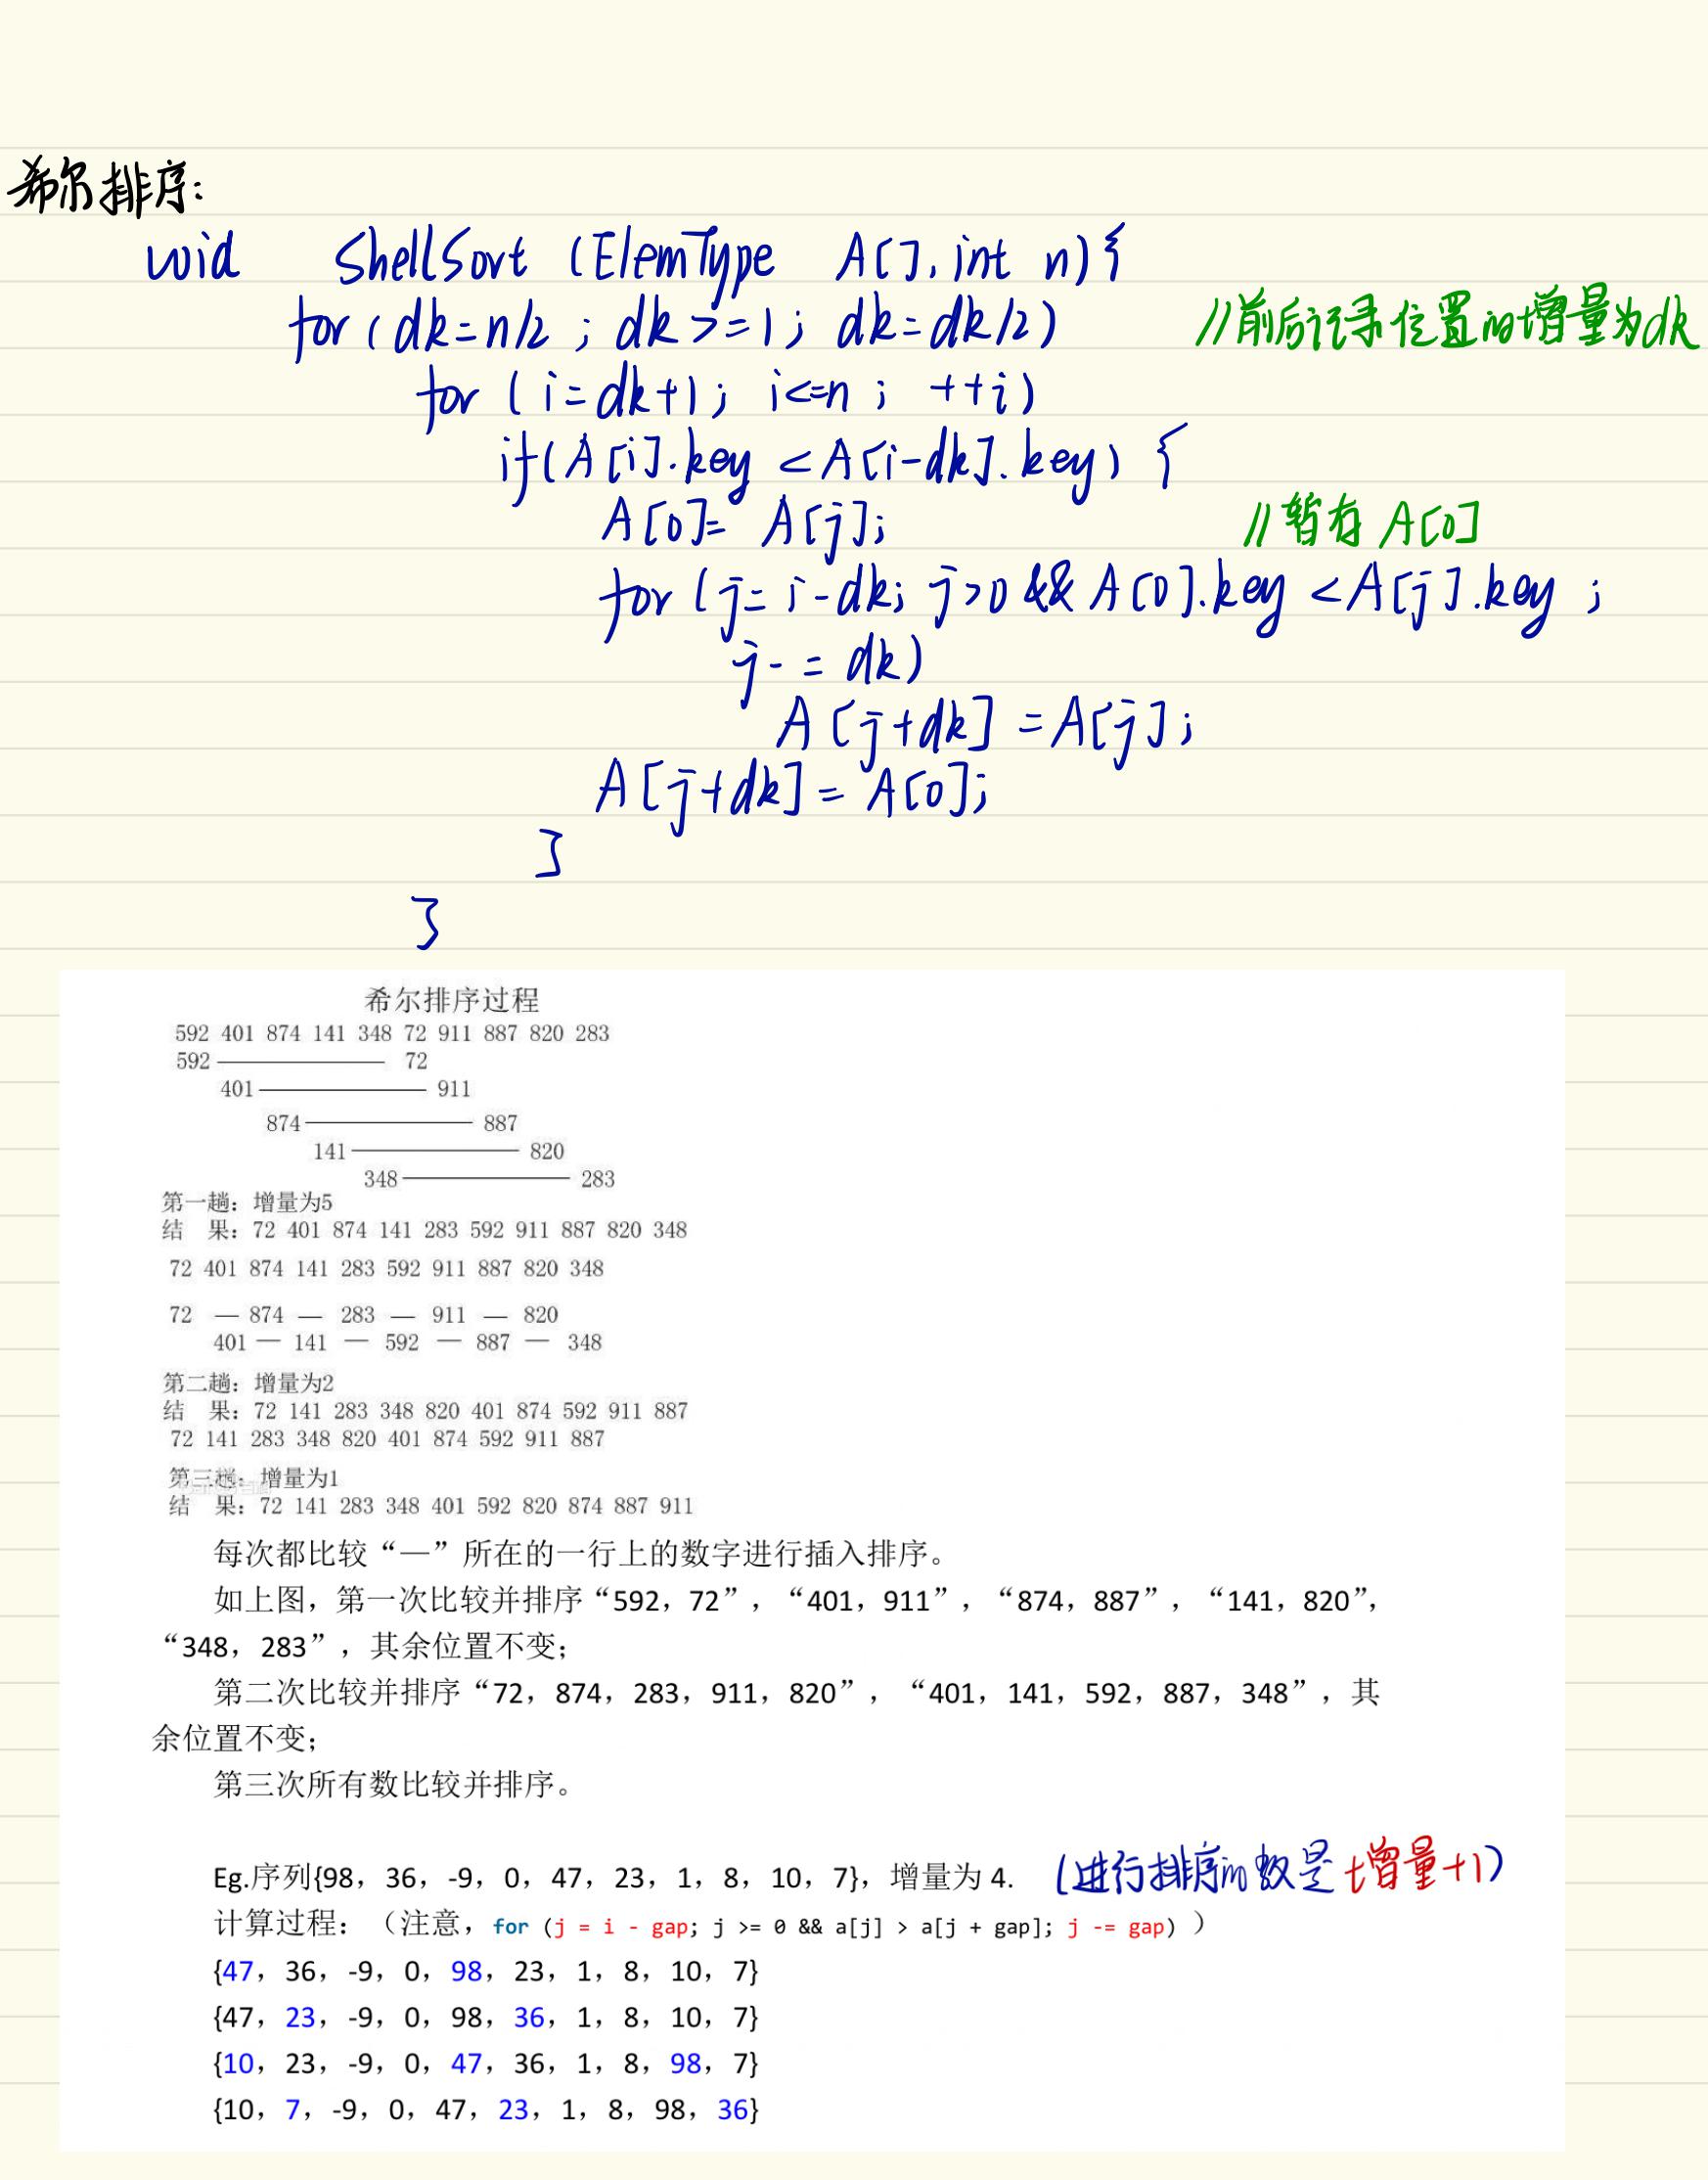 希尔排序:
void ShellSort (ElemType A[], int n){
for (dk=n/2; dk>=1; dk=dk/2) //前后记录位置的增量为dk
for (i=dk+1; i<=n; ++i)
if(A[i].key<A[i-dk].key) {
A[0]=A[j]; //暂存A[0]
for (j=i-dk; j>0&&A[0].key<A[j].key;
j-=dk)
A[j+dk]=A[j];
A[j+dk]=A[0];
}
}
希尔排序过程
592 401 874 141 348 72 911 887 820 283
592 —— 72
401 —— 911
874 —— 887
141 —— 820
348 —— 283
第一趟：增量为5
结 果：72 401 874 141 283 592 911 887 820 348
72 401 874 141 283 592 911 887 820 348
72 — 874 — 283 — 911 — 820
401 — 141 — 592 — 887 — 348
第二趟：增量为2
结 果：72 141 283 348 820 401 874 592 911 887
72 141 283 348 820 401 874 592 911 887
第三趟：增量为1
结 果：72 141 283 348 401 592 820 874 887 911
每次都比较“—”所在的一行上的数字进行插入排序。
如上图，第一次比较并排序“592，72”，“401，911”，“874，887”，“141，820”，
“348，283”，其余位置不变；
第二次比较并排序“72，874，283，911，820”，“401，141，592，887，348”，其
余位置不变；
第三次所有数比较并排序。
Eg.序列{98，36，-9，0，47，23，1，8，10，7}，增量为 4. (进行排序的数是增量+1)
计算过程：（注意，for (j = i - gap; j >= 0 && a[j] > a[j + gap]; j -= gap) ）
{47，36，-9，0，98，23，1，8，10，7}
{47，23，-9，0，98，36，1，8，10，7}
{10，23，-9，0，47，36，1，8，98，7}
{10，7，-9，0，47，23，1，8，98，36}